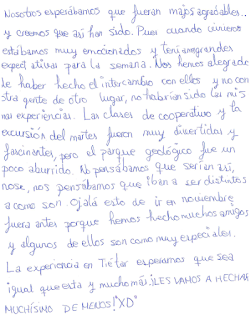 Nosotros esperábamos que fueran majos, agradables..
y creemos que así han sido. Pues cuando vinieron
estábamos muy emocionados y teníamos grandes
expectativas para la semana. Nos hemos alegrado
de haber hecho el intercambio con ellos y no con
otra gente de otro lugar, no habrían sido las mis
mas experiencias. Las clases de cooperativo y la
excursión del martes fueron muy divertidas y
fascinantes, pero el parque geológico fue un
poco aburrido. No pensábamos que serían así,
nose, nos pensábamos que iban a ser distintos
a como son. Ojalá esto de ir en noviembre
fuera antes porque hemos hecho muchos amigos
y algunos de ellos son como muy especiales.
La experiencia en esperamos que sea
igual que esta y mucho más. ¡LES VAMOS A HECHAR
MUCHÍSIMO DE MENOS! XD